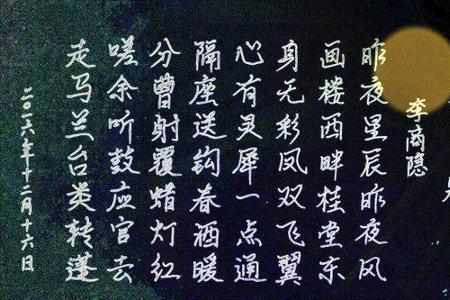 李商隐
昨夜星辰昨夜风
画楼西畔桂堂东
身无彩凤双飞翼
心有灵犀一点通
隔座送钩春酒暖
分曹射覆蜡灯红
嗟余听鼓应官去
走马兰台类转蓬
二〇一六年十二月十六日